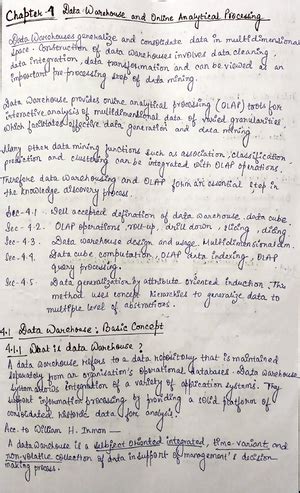 Chapter 4 Data Warehouse and Online Analytical Processing
Data Warehouses generalize and consolidate data in multidimensional
space. Construction of data warehouses involves data cleaning,
data integration, data transformation and can be viewed as an
important pre-processing step of data mining.
Data Warehouse provides online analytical processing (OLAP) tools for
interactive analysis of multidimensional data of varied granularities
which facilitates effective data generation and data mining
Many other data mining functions such as association, classification,
prediction and clustering can be integrated with OLAP operations.
Therefore data warehousing and OLAP form an essential step in
the knowledge discovery process.
Sec-4.1. Well accepted definition of data warehouse, data cube,
Sec-4.2. OLAP operations, roll-up, drill down, slicing, dicing
Sec-4.3. Data warehouse design and usage. Multidimensional
Sec-4.4. Data cube computation, OLAP data indexing, OLAP
query processing.
Sec-4.5 Data generalization by attribute oriented induction. This
method uses concept hierarchies to generalize data to
multiple level of abstractions.
4.1 Data Warehouse: Basic Concept
4.1.1 What is data Warehouse?
A data warehouse refers to a data repository that is maintained
separately from an organisation's operational databases. Data warehouse
systems allows integration of a variety of application systems. They
support information processing by providing a solid platform of
consolidated historic data for analysis.
Acc. to William H. Inmon —
A data warehouse is a subject oriented, integrated, time-variant and
non-volatile collection of data in support of management's decision
making process.